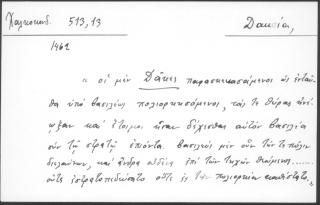 Χαλκοκονδ. 513,13 Δακία,
1462
" οἱ μὲν Δᾶκες παρασκευασάμενοι ὡς ἐνταῦ-
θα ὑπὸ βασιλέως πολιορκησόμενοι, τάς τε θύρας ἀνέ-
ῳξαν καὶ ἕτοιμοι ἦσαν δέχεσθαι αὐτὸν βασιλέα
σὺν τῷ στρατῷ ἐπιόντα. βασιλεὺς μὲν οὖν τήν τε πόλιν
διελαύνων, καὶ ἄνδρα οὐδένα ἐπὶ τῶν τειχῶν θεώμενος......
οὔτε ἐστρατοπεδεύσατο οὔτε ἐς τὴν πολιορκίαν καθίστατο.